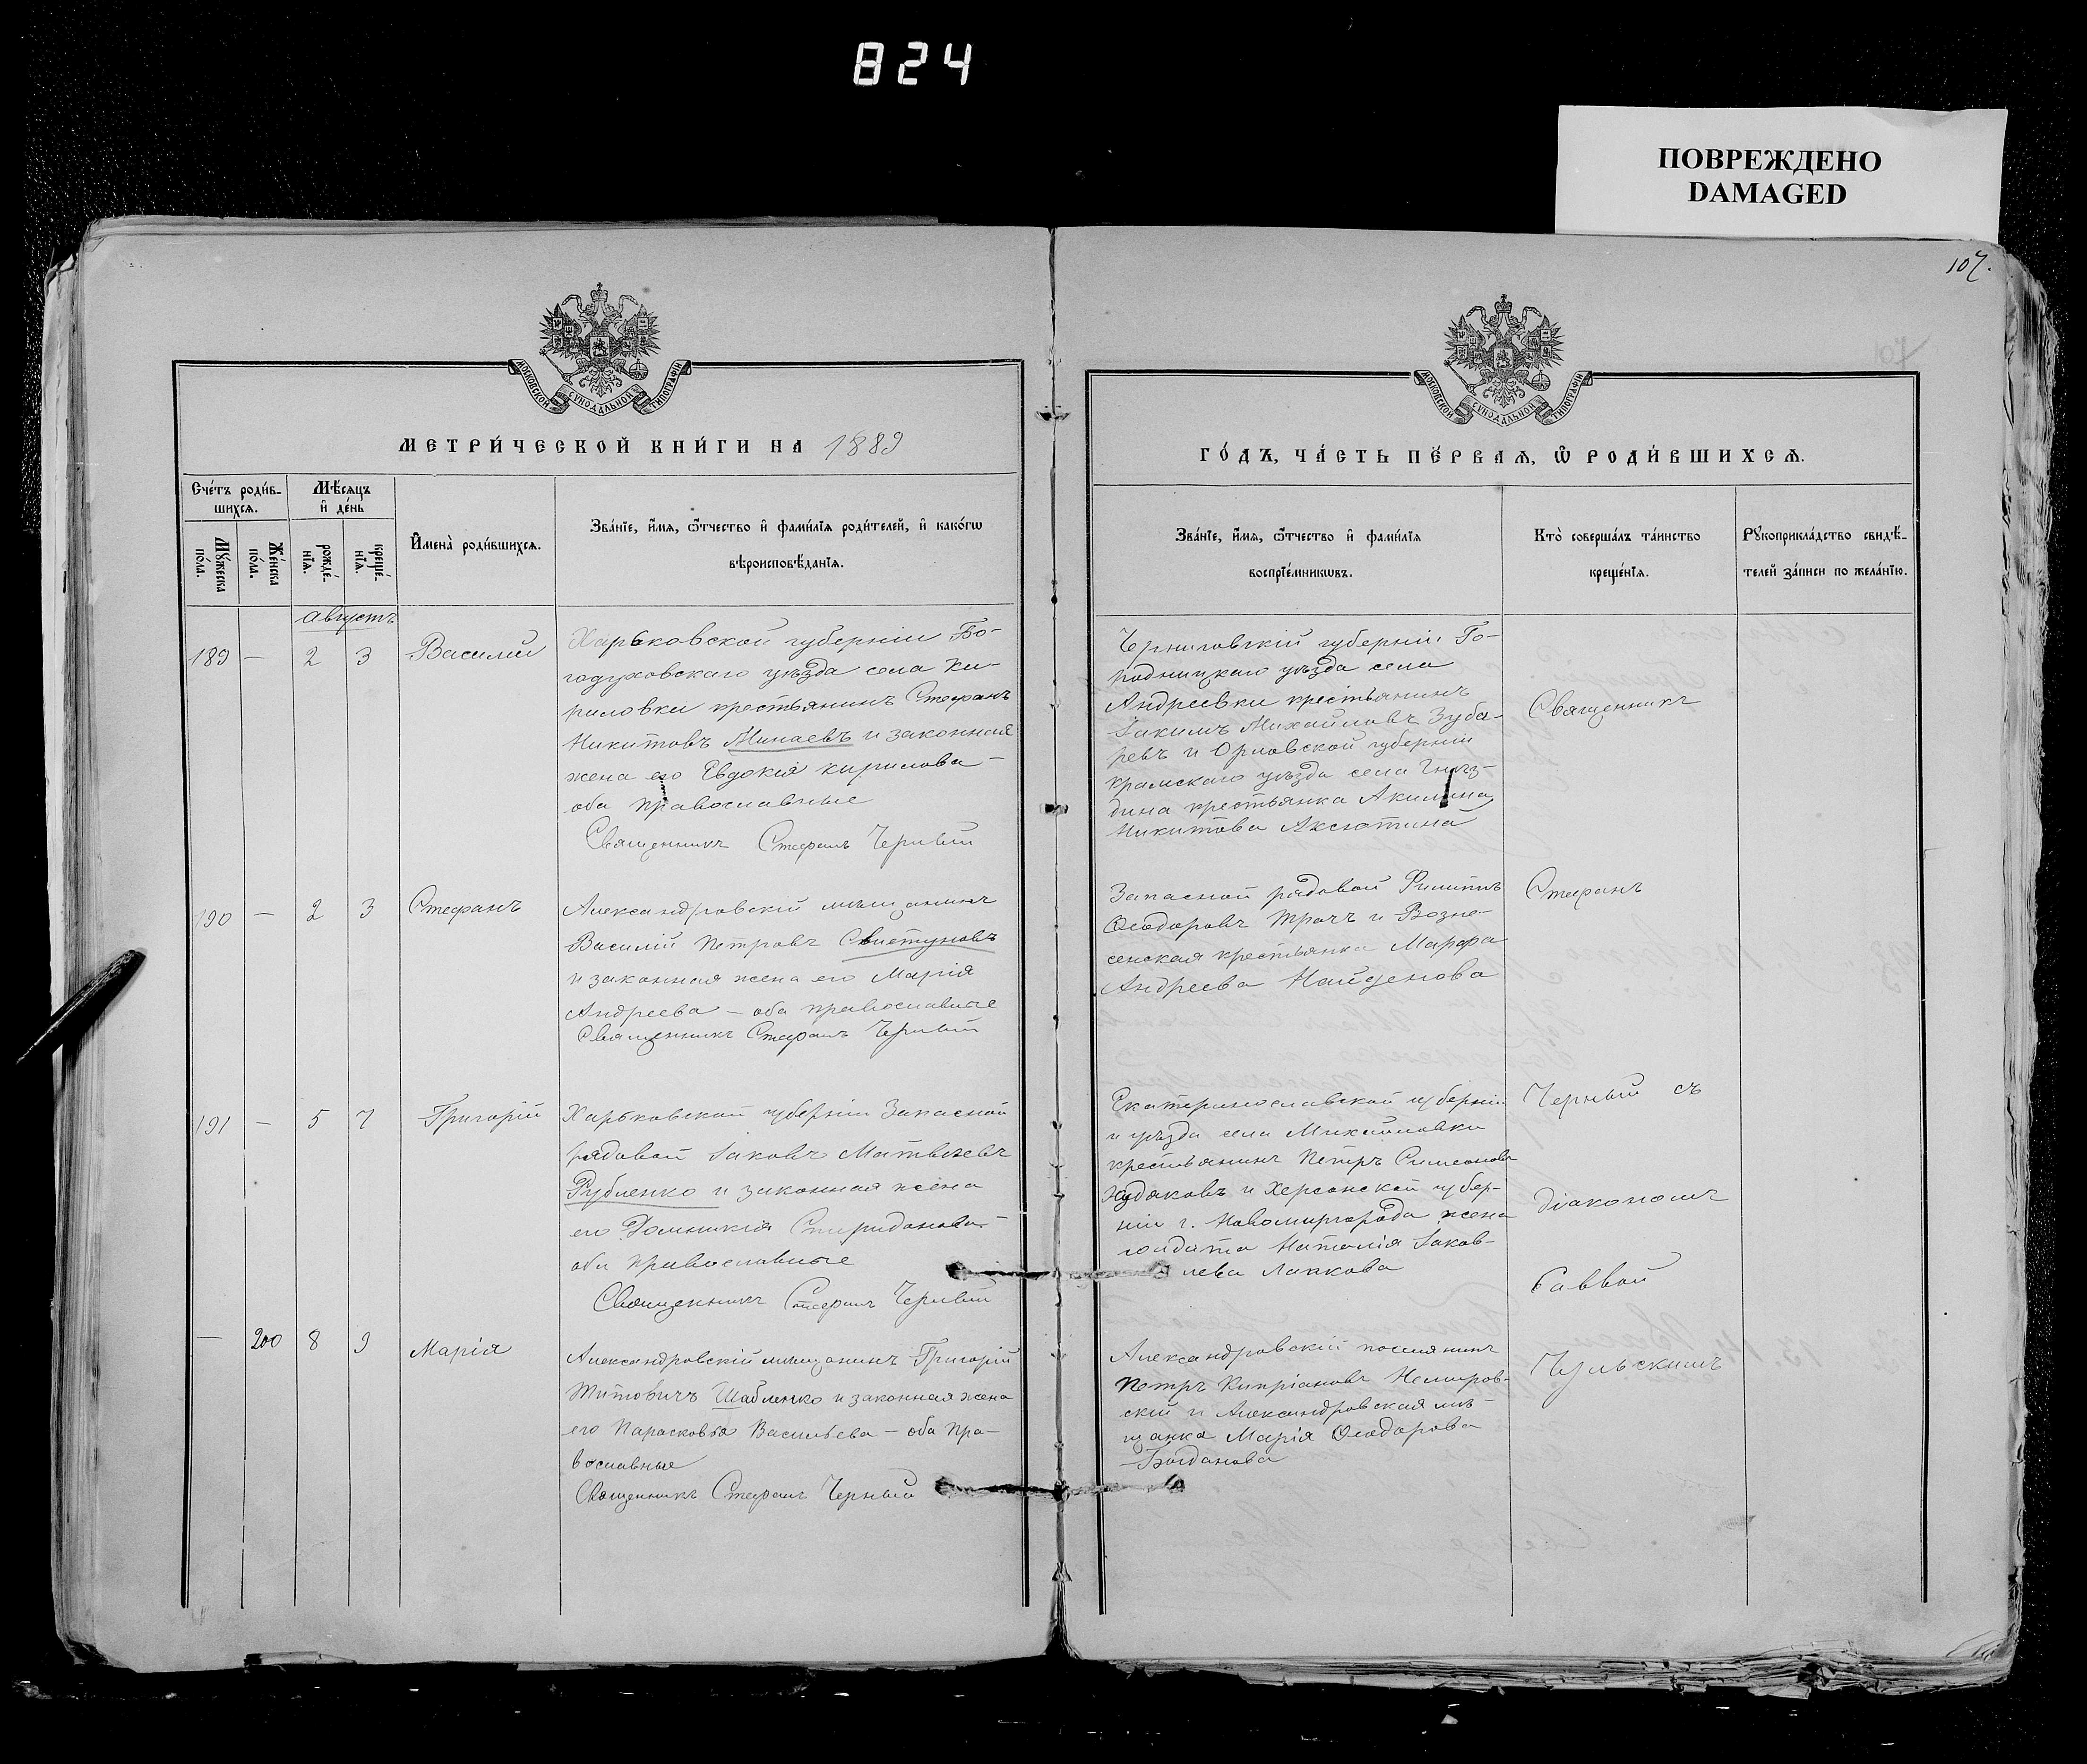 824
ПОВРЕЖДЕНО
DAMAGED
107.
МОСКОВСКОЙ СѴНОДАЛЬНОЙ ТИПОГРАФІИ
МОСКОВСКОЙ СѴНОДАЛЬНОЙ ТИПОГРАФІИ
МЕТРИ́ЧЕСКОЙ КНИ́ГИ НА 1889
ГО́ДЪ, ЧА́СТЬ ПЕ́РВАѦ, Ѡ РОДИ́ВШИХСѦ.
Сче́тъ роди́в-
шихсѧ.
Мꙋ́жеска
по́ла.
Же́нска
по́ла.
Мѣ́сѧцъ
и҆ де́нь
рожде́-
нїѧ.
креще́-
нїѧ.
И҆мена̀ роди́вшихсѧ.
Зва́нїе, и҆́мѧ, ѻ҆́тчество и҆ фами́лїѧ роди́телей, и҆ како́гѡ
вѣроисповѣ́данїѧ.
Зва́нїе, и҆́мѧ, ѻ҆́тчество и҆ фами́лїѧ
воспрїе́мникѡвъ.
Кто̀ соверша́лъ та́инство
креще́нїѧ.
Рꙋкоприкла́дство свидѣ́-
телей за́писи по жела́нїю.
Августъ
189 — 2 3 Василій
Харьковской губерніи Бо-
годуховскаго уѣзда села Ки-
риловки крестьянинъ Стефанъ
Никитовъ Минаевъ и законная
жена его Евдокія Кирилова —
оба православные
Священникъ Стефанъ Черный
Черниговскій губерніи Го-
родницкаго уѣзда села
Андреевки крестьянинъ
Іакимъ Михайловъ Зуба-
ревъ и Орловской губерніи
крамскаго уѣзда села Гнѣз-
дина крестьянка Акилина
Никитова Аксютина
Священникъ
190 — 2 3 Стефанъ
Александровскій мѣщанинъ
Василій Петровъ Свистуновъ
и законная жена его Марія
Андреева — оба православные
Священникъ Стефанъ Черный
Запасной рядовой Филиппъ
Ѳеодоровъ Трачъ и Возне-
сенская крестьянка Марфа
Андреева Найденова
Стефанъ
191 — 5 7 Григорій
Харьковской губерніи Запасной
рядовой Іаковъ Матвѣевъ
Рубленко и законная жена
его Домникія Спиридонова —
оба православные
Священникъ Стефанъ Черный
Екатеринославской губерніи
и уѣзда села Михайловки
крестьянинъ Петръ Симеоновъ
Худяковъ и Херсонской губер-
ніи г. Новомиргорода жена
солдата Наталія Іаков-
лева Лапкова
Черный съ
діакономъ
Саввой
— 200 8 9 Марія
Александровскій мѣщанинъ Григорій
Титовичъ Шабленко и законная жена
его Парасковья Васильева — оба пра-
вославные
Священникъ Стефанъ Черный
Александровскій
Петръ Кипріановъ Немиров-
скій и Александровская мѣ-
щанка Марія Ѳеодорова
Богданова